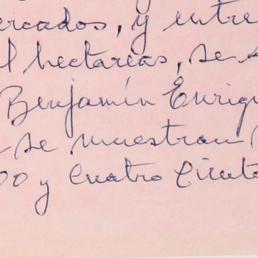 ercados, y entre
l hectareas, se
Benjamín Enriqu
se muestran
00 y cuatro